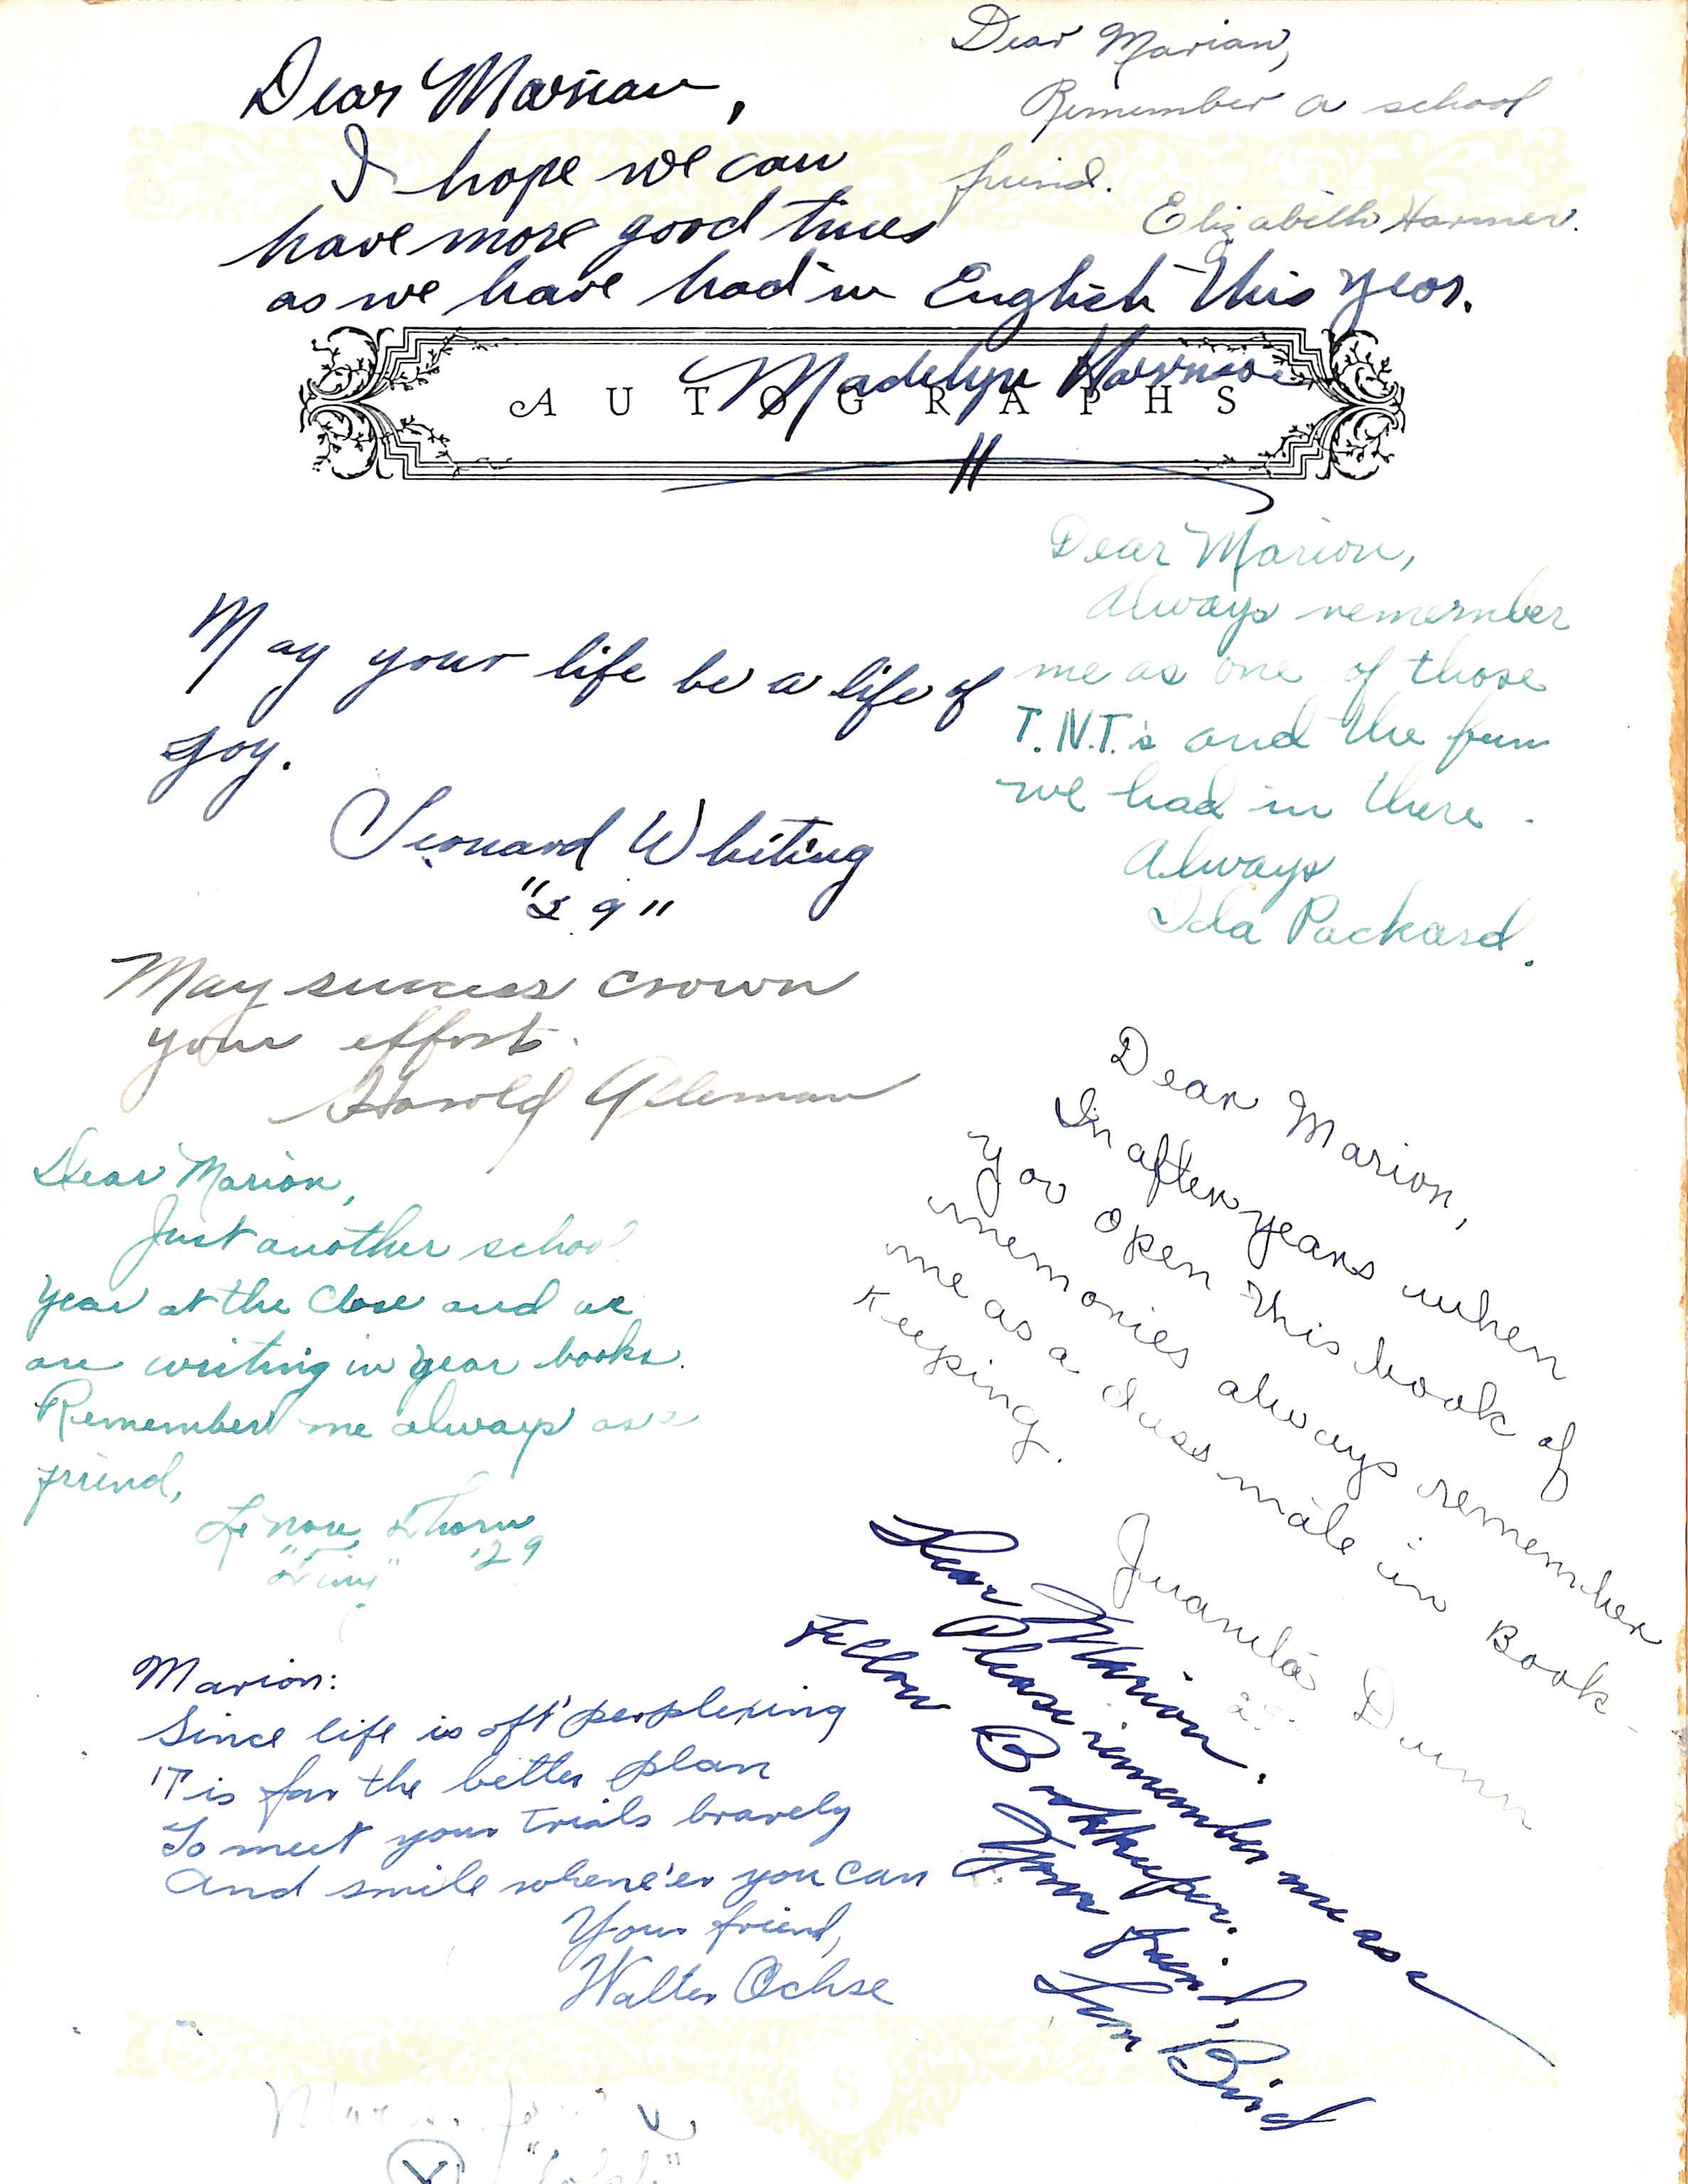 Dear Marian,
I hope we can
have more good times
as we have had in English this year.
Madelyn
Dear Marian,
Remember a school
friend.
Elizabeth Harmer.
AUTOGRAPHS
Dear Marion,
Always remember
me as one of those
T.N.T.'s and the fun
we had in there.
Always
Ida Packard.
May your life be a life of
joy.
Leonard Whiting
"29"
May success crown
your effort.
Harold Alleman
Dear Marion,
Just another school
year at the close and we
are writing in year books.
Remember me always as a
friend,
Lenore Thorn
'29
Dear Marion,
In after years when
you open this book of
memories always remember
me as a class mate in Book-
keeping.
Juanita Dunn
Dear Marion.
Please remember me as a
fellow Bookkeeper.
Your friend,
Bird
Marion:
Since life is oft' perplexing
'Tis for the better plan
To meet your trials bravely
And smile whene'er you can
Your friend,
Walter Ochse
S